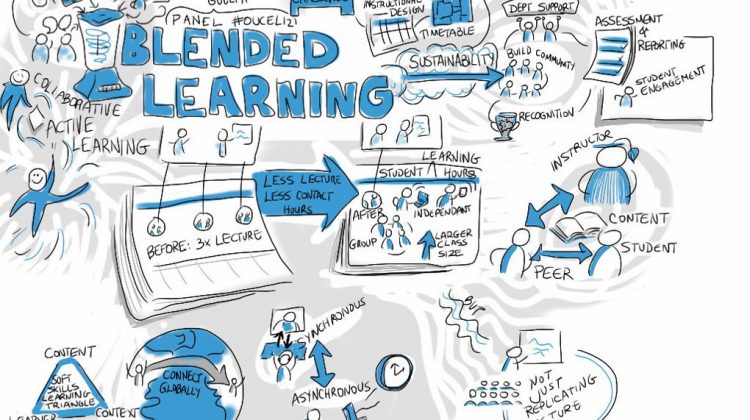 (PANEL #OUCEL12)
BLENDED
LEARNING
INSTRUCTIONAL
DESIGN
TIMETABLE
SUSTAINABILITY
DEPT SUPPORT
BUILD COMMUNITY
RECOGNITION
ASSESSMENT
&
REPORTING
STUDENT
ENGAGEMENT
COLLABORATIVE
ACTIVE
LEARNING
BEFORE: 3x LECTURE
LESS LECTURE
LESS CONTACT
HOURS
LEARNING
STUDENT HOURS
AFTER
INDEPENDANT
GROUP
LARGER
CLASS
SIZE
INSTRUCTOR
CONTENT
STUDENT
PEER
CONTENT
SOFT
SKILLS
LEARNING
TRIANGLE
LEARNER
CONTEXT
CONNECT
GLOBALLY
SYNCHRONOUS
ASYNCHRONOUS
BUT
NOT
JUST
REPLICATING